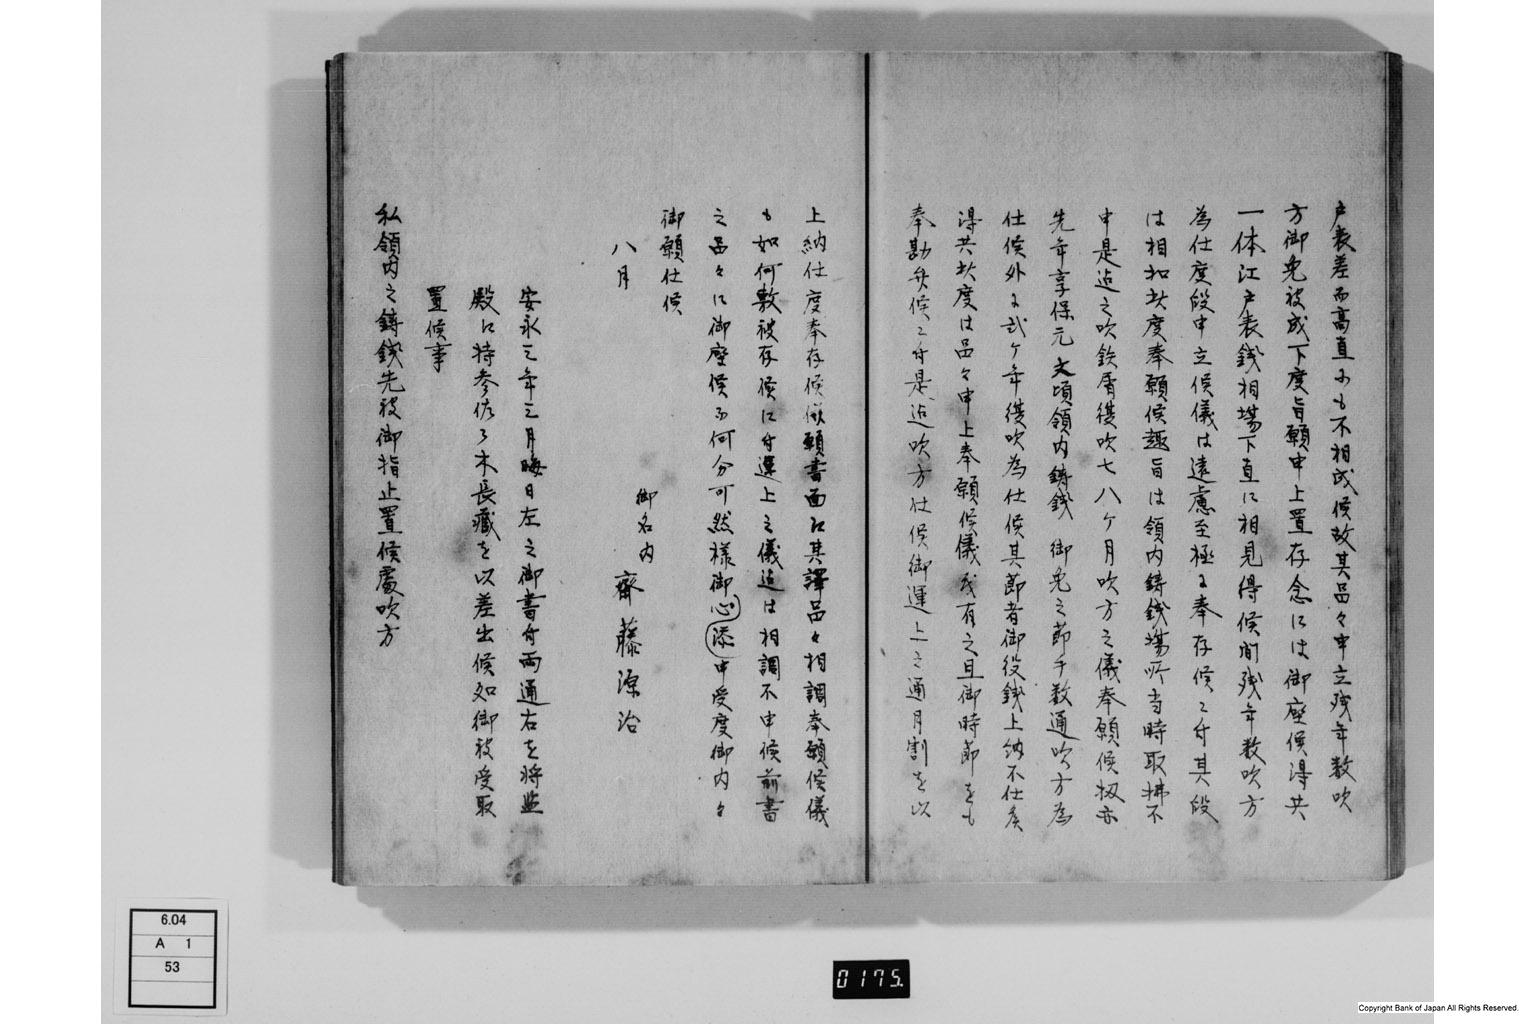 戸表差而高直ニも不相成候故其品々申立残年数吹
方御免被成下度旨願申上置存念には御座候得共
一体江戸表銭相場下直に相見得候間残年数吹方
為仕度段申立候儀は遠慮至極ニ奉存候ニ付其段
は相扣此度奉願候趣旨は領内鋳銭場所当時取拂不
申是迠之吹鉄屑継吹七八ケ月吹方之儀奉願候扨亦
先年享保元文頃領内鋳銭 御免之節千数通吹方為
仕候外ニ弐ケ年継吹為仕候其節者御役銭上納不仕候
得共此度は品々申上奉願候儀ニ有之且御時節をも
奉勘弁候ニ付是迠吹方仕候御運上之通月割を以
上納仕度奉存候依願書面江其譯品々相調奉願候儀
も如何敷被存候に付運上之儀迠は相調不申候前書
之品々に御座候而何分可然様御心添申受度御内々
御願仕候
八月
御名内 齋藤源治
安永三年三月晦日左之御書付両通右を将監
殿江持参佐々木長蔵を以差出候処御被受取
置候事
私領内之鋳銭先被御指止置候處吹方
6.04
A 1
53
0175.
Copyright Bank of Japan All Rights Reserved.